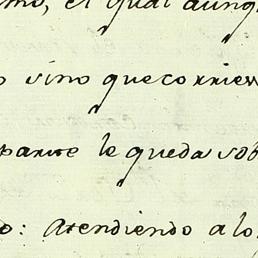 el qual aunq
sino que corrien
parute le queda sob
: Atendiendo a lo